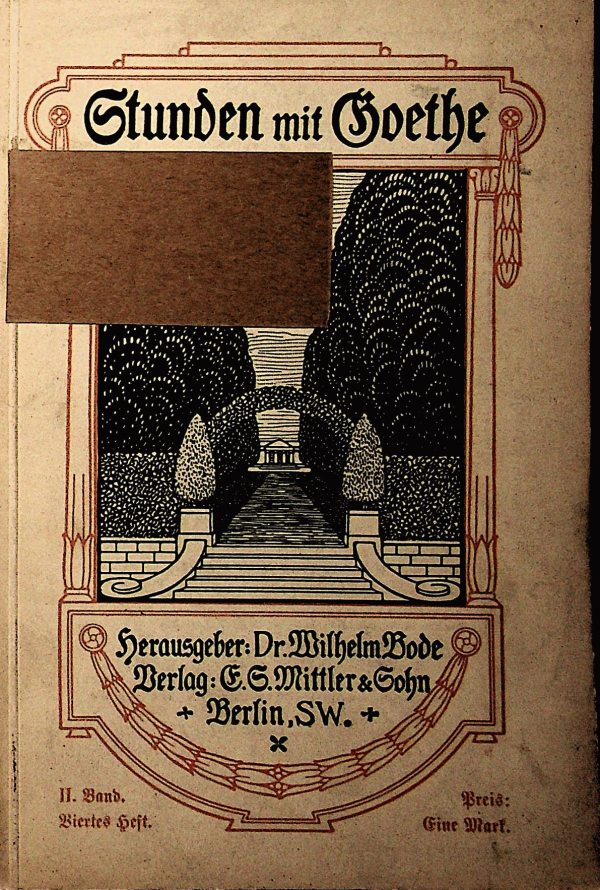 Stunden mit Goethe
Herausgeber: Dr. Wilhelm Bode
Verlag: E. S. Mittler & Sohn
+ Berlin, SW. +
II. Band.
Viertes Heft.
Preis:
Eine Mark.